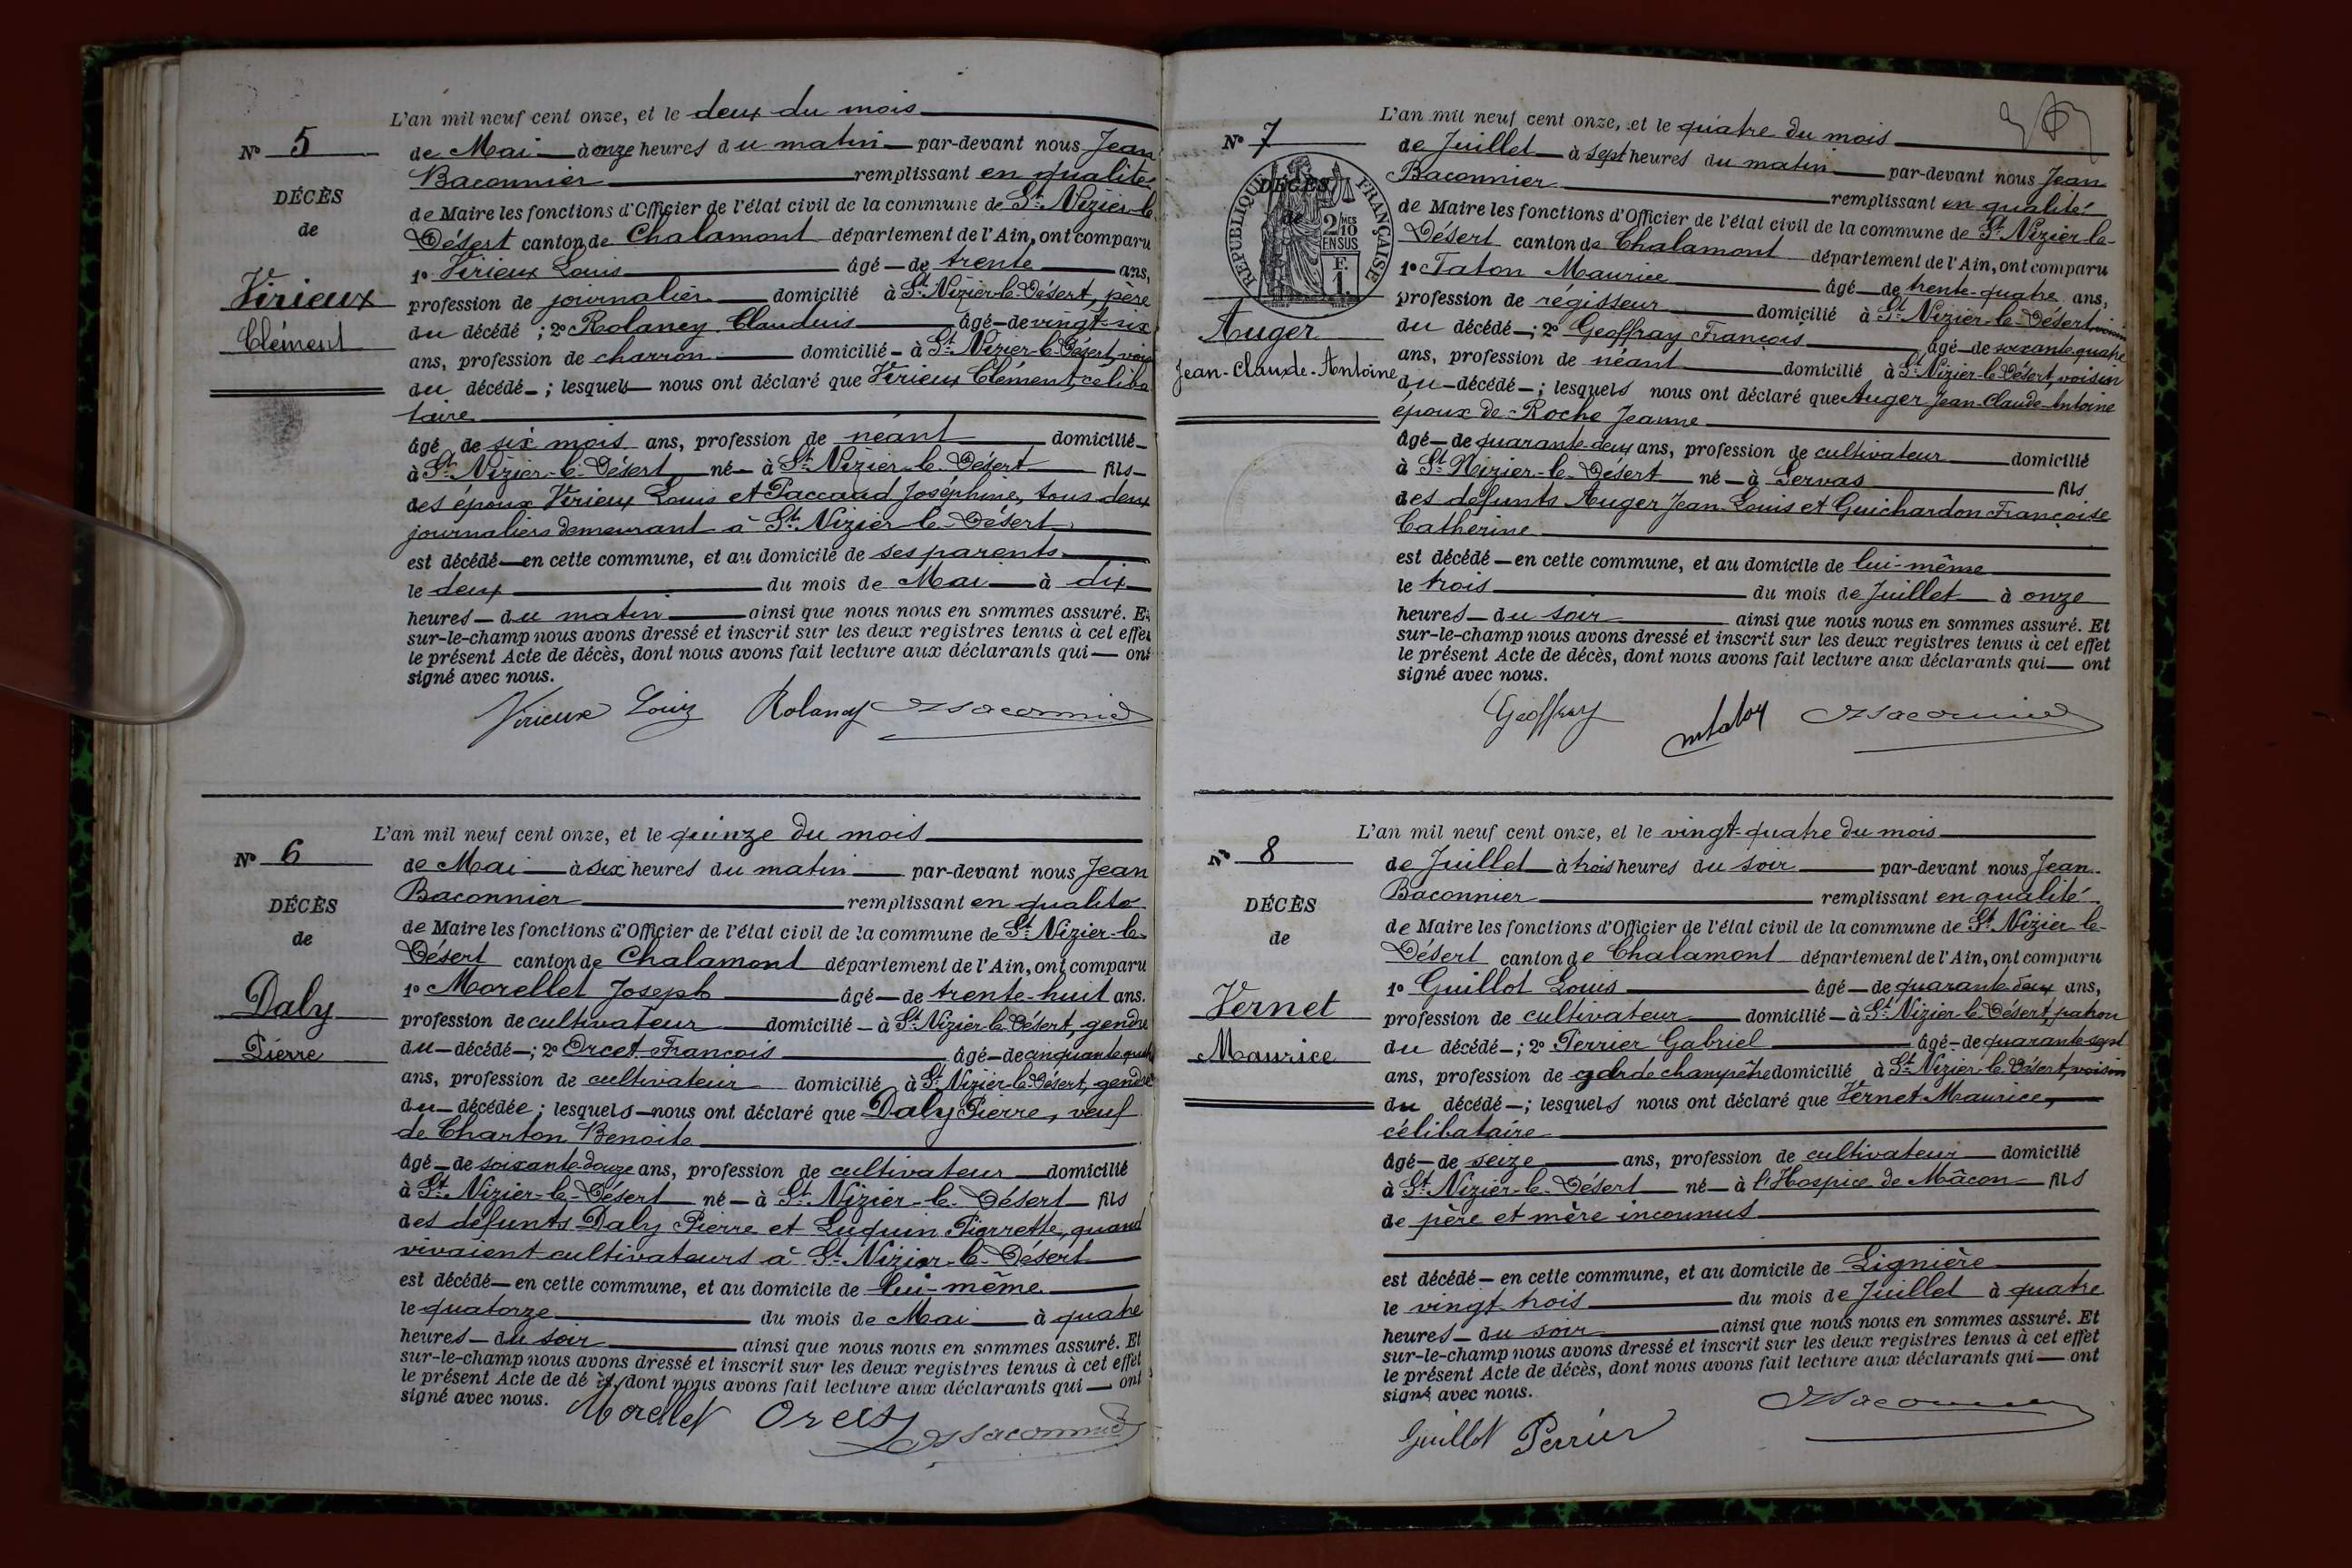 L'an mil neuf cent onze, et le deux du mois
N° 5
de Mai à onze heures du matin par-devant nous Jean
Baconnier remplissant en qualité
DÉCÈS
de Maire les fonctions d'Officier de l'état civil de la commune de St Nizier-le-
de
Désert canton de Chalamont département de l'Ain, ont comparu
1° Virieux Louis âgé de trente ans,
Virieux
profession de journalier domicilié à St Nizier-le-Désert, père
du décédé ; 2° Rolaney Claudius âgé de vingt-six
Clément
ans, profession de charron domicilié à St Nizier-le-Désert,
du décédé ; lesquels nous ont déclaré que Virieux Clément, céliba
taire
âgé de six mois ans, profession de néant domicilié
à St Nizier-le-Désert né à St Nizier-le-Désert fils
des époux Virieux Louis et Paccaud Joséphine, tous deux
journaliers demeurant à St Nizier-le-Désert
est décédé en cette commune, et au domicile de ses parents
le deux du mois de Mai à dix
heures du matin ainsi que nous nous en sommes assuré. Et
sur-le-champ nous avons dressé et inscrit sur les deux registres tenus à cet effet
le présent Acte de décès, dont nous avons fait lecture aux déclarants qui ont
signé avec nous.
Virieux Louis Rolaney Baconnier
L'an mil neuf cent onze, et le quinze du mois
N° 6
de Mai à six heures du matin par-devant nous Jean
Baconnier remplissant en qualité
DÉCÈS
de Maire les fonctions d'Officier de l'état civil de la commune de St Nizier-le-
de
Désert canton de Chalamont département de l'Ain, ont comparu
1° Morellet Joseph âgé de trente-huit ans.
Daly
profession de cultivateur domicilié à St Nizier-le-Désert, gendre
Pierre
du décédé ; 2° Orcet François âgé de cinquante quatre
ans, profession de cultivateur domicilié à St Nizier-le-Désert, gendre
du décédée ; lesquels nous ont déclaré que Daly Pierre, veuf
de Charton Benoite
âgé de soixante douze ans, profession de cultivateur domicilié
à St Nizier-le-Désert né à St Nizier-le-Désert fils
des défunts Daly Pierre et Luquin Pierrette, quand
vivaient cultivateurs à St Nizier-le-Désert
est décédé en cette commune, et au domicile de lui-même
le quatorze du mois de Mai à quatre
heures du soir ainsi que nous nous en sommes assuré. Et
sur-le-champ nous avons dressé et inscrit sur les deux registres tenus à cet effet
le présent Acte de dé ès, dont nous avons fait lecture aux déclarants qui ont
signé avec nous.
Morellet Orcet Baconnier
L'an mil neuf cent onze, et le quatre du mois
N° 7
de Juillet à sept heures du matin par-devant nous Jean
Baconnier remplissant en qualité
DÉCÈS
de
RÉPUBLIQUE FRANÇAISE
2/10 MES
EN SUS
F.
1.
de Maire les fonctions d'Officier de l'état civil de la commune de St Nizier-le-
Désert canton de Chalamont département de l'Ain, ont comparu
1° Taton Maurice âgé de trente-quatre ans,
profession de régisseur domicilié à St Nizier-le-Désert, voisin
Auger
du décédé ; 2° Geoffray François âgé de soixante quatre
Jean-Claude-Antoine
ans, profession de néant domicilié à St Nizier-le-Désert, voisin
du décédé ; lesquels nous ont déclaré que Auger Jean-Claude-Antoine
époux de Roche Jeanne
âgé de quarante-deux ans, profession de cultivateur domicilié
à St Nizier-le-Désert né à Servas fils
des défunts Auger Jean Louis et Guichardon Françoise
Catherine
est décédé en cette commune, et au domicile de lui-même
le trois du mois de Juillet à onze
heures du soir ainsi que nous nous en sommes assuré. Et
sur-le-champ nous avons dressé et inscrit sur les deux registres tenus à cet effet
le présent Acte de décès, dont nous avons fait lecture aux déclarants qui ont
signé avec nous.
Geoffray Baconnier
L'an mil neuf cent onze, et le vingt-quatre du mois
N° 8
de Juillet à trois heures du soir par-devant nous Jean
Baconnier remplissant en qualité
DÉCÈS
de Maire les fonctions d'Officier de l'état civil de la commune de St Nizier-le-
de
Désert canton de Chalamont département de l'Ain, ont comparu
1° Guillot Louis âgé de quarante deux ans,
Vernet
profession de cultivateur domicilié à St Nizier-le-Désert, patron
Maurice
du décédé ; 2° Perrier Gabriel âgé de quarante-sept
ans, profession de garde champêtre domicilié à St Nizier-le-Désert, voisin
du décédé ; lesquels nous ont déclaré que Vernet Maurice,
célibataire
âgé de seize ans, profession de cultivateur domicilié
à St Nizier-le-Désert né à l'Hospice de Mâcon fils
de père et mère inconnus
est décédé en cette commune, et au domicile de Lignière
le vingt trois du mois de Juillet à quatre
heures du soir ainsi que nous nous en sommes assuré. Et
sur-le-champ nous avons dressé et inscrit sur les deux registres tenus à cet effet
le présent Acte de décès, dont nous avons fait lecture aux déclarants qui ont
signé avec nous.
Guillot Perrier Baconnier